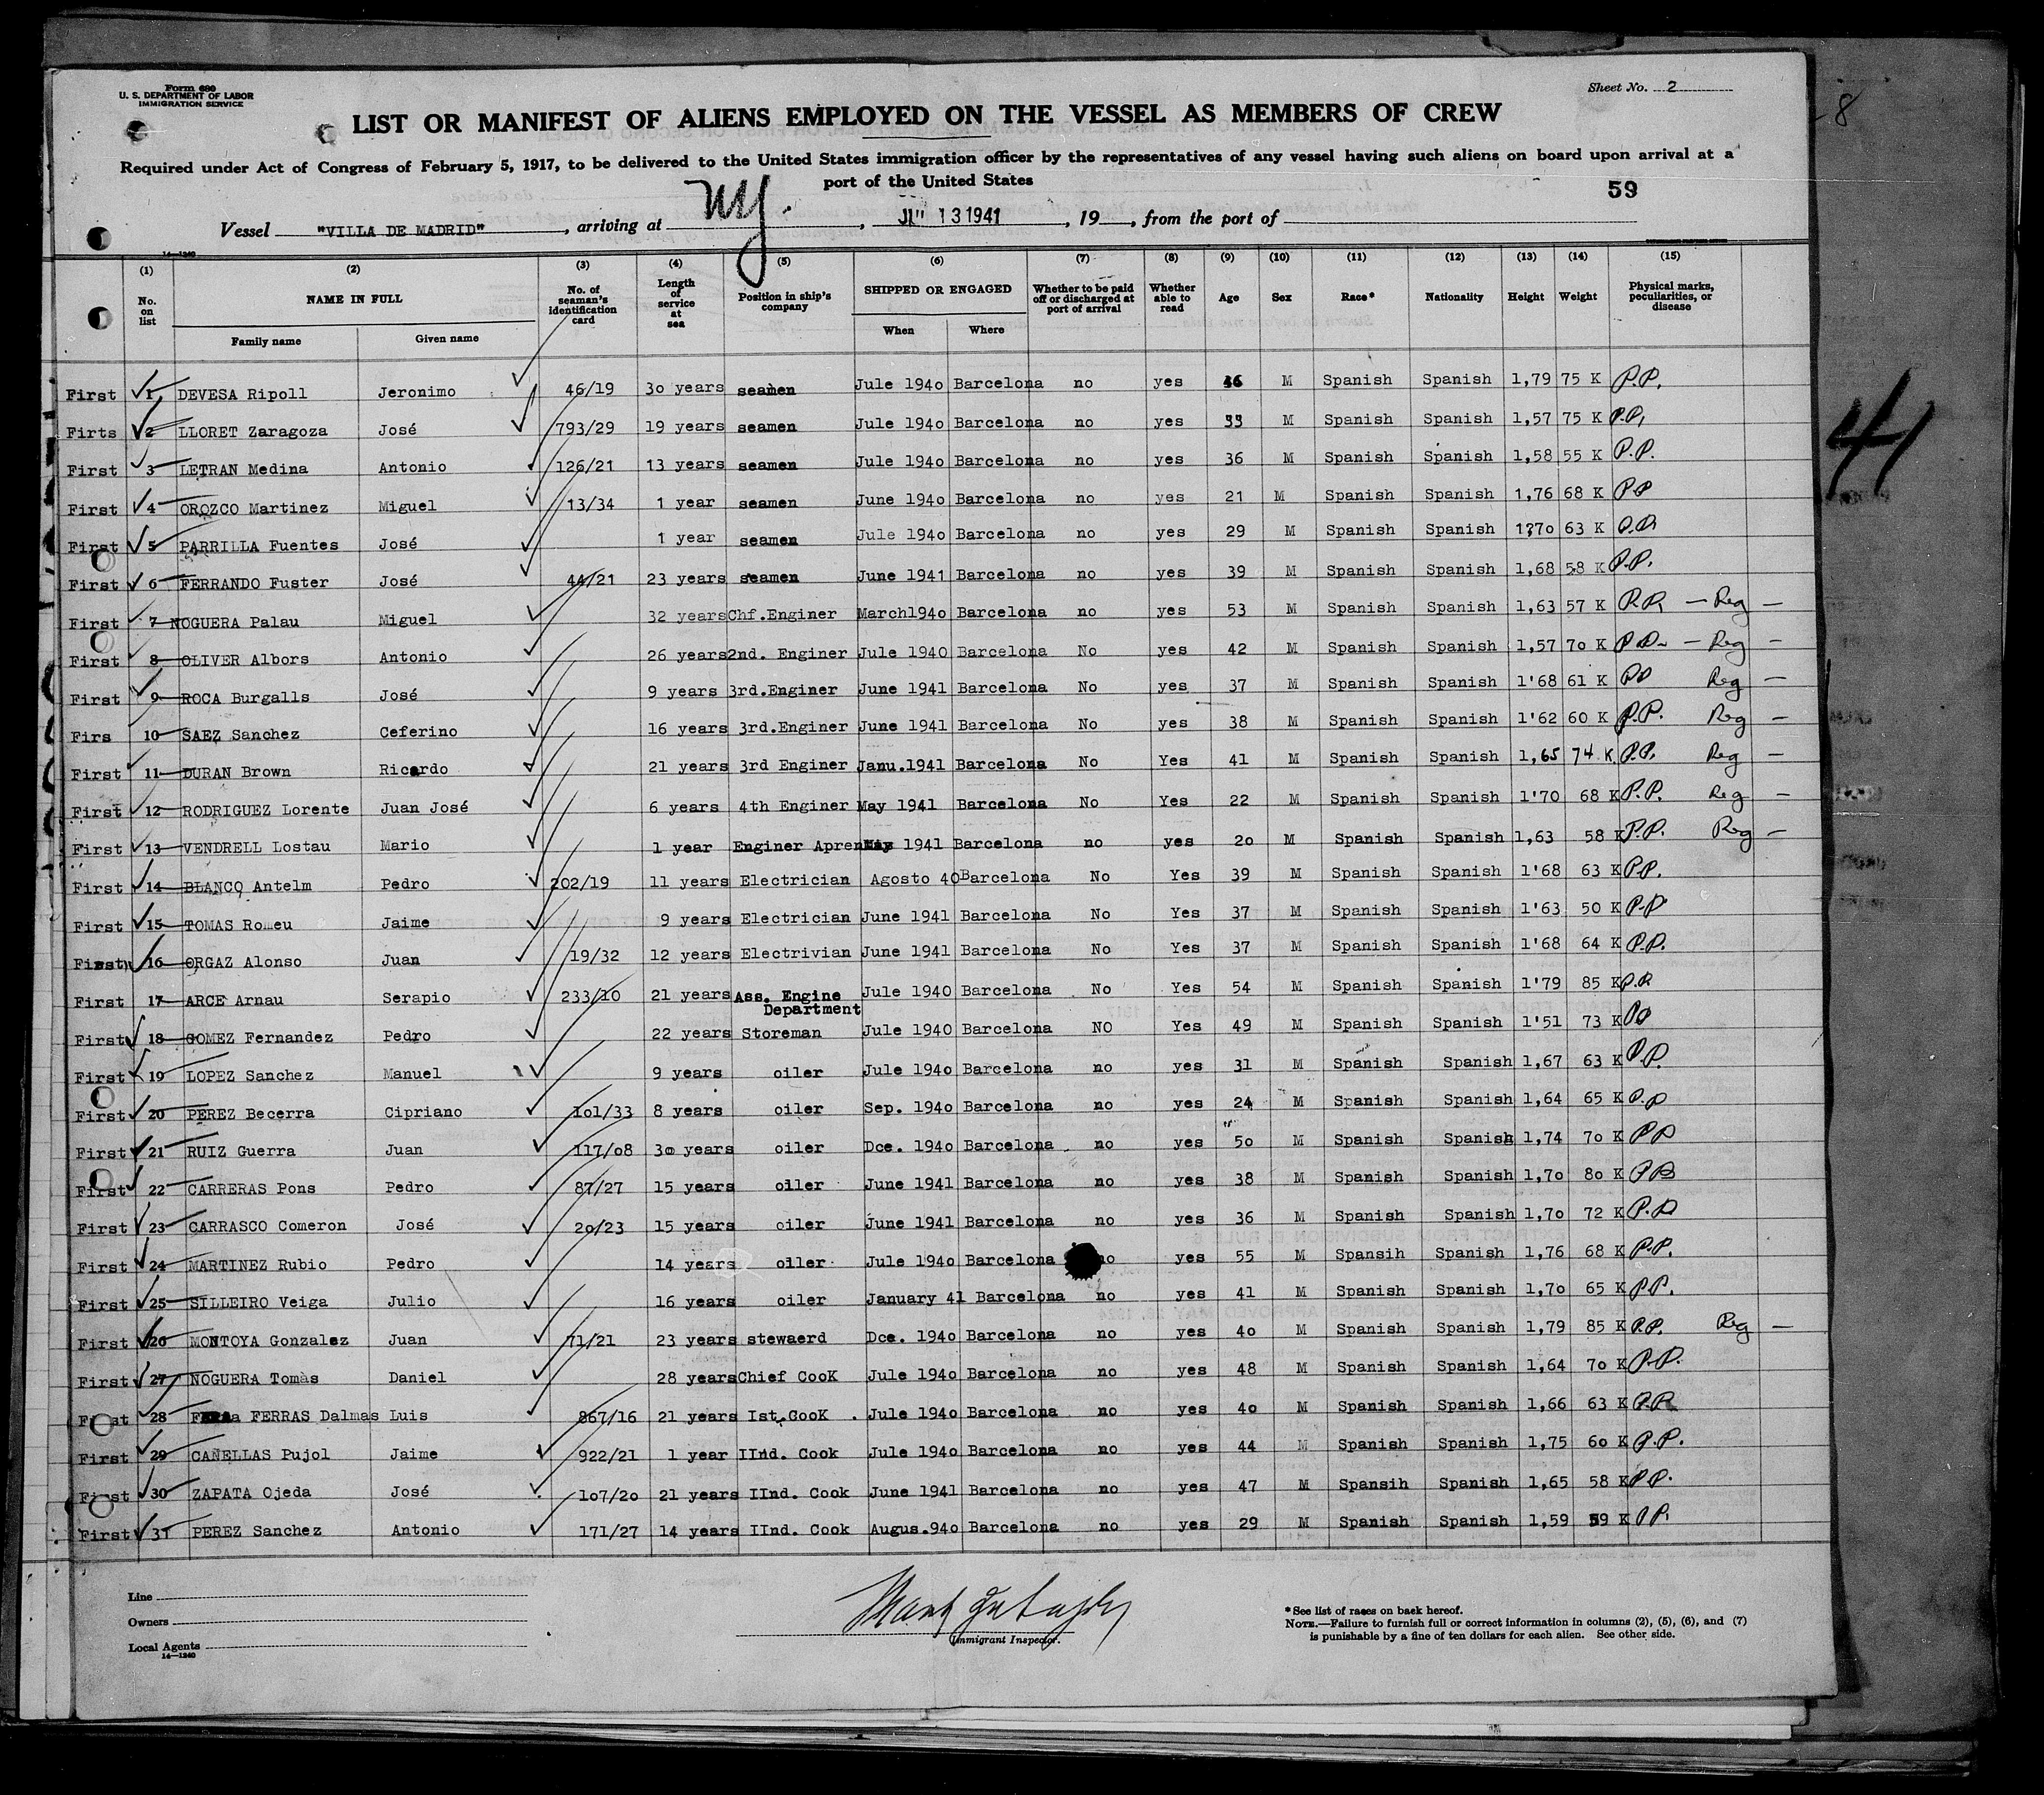 Form 680
U. S. DEPARTMENT OF LABOR
IMMIGRATION SERVICE
Sheet No. 2
8
LIST OR MANIFEST OF ALIENS EMPLOYED ON THE VESSEL AS MEMBERS OF CREW
Required under Act of Congress of February 5, 1917, to be delivered to the United States immigration officer by the representatives of any vessel having such aliens on board upon arrival at a
port of the United States
59
Vessel "VILLA DE MADRID", arriving at NY., 13 1941, 19, from the port of
14—1240
(1) (2) (3) (4) (5) (6) (7) (8) (9) (10) (11) (12) (13) (14) (15)
No. on list NAME IN FULL Family name Given name No. of seaman's identification card Length of service at sea Position in ship's company SHIPPED OR ENGAGED When Where Whether to be paid off or discharged at port of arrival Whether able to read Age Sex Race* Nationality Height Weight Physical marks, peculiarities, or disease
First 1 DEVESA Ripoll Jeronimo 46/19 3o years seamen Jule 194o Barcelona no yes M Spanish Spanish 1,79 75 K P.P.
Firts 2 LLORET Zaragoza José 793/29 19 years seamen Jule 194o Barcelona no yes 33 M Spanish Spanish 1,57 75 K P.P.
First 3 LETRAN Medina Antonio 126/21 13 years seamen Jule 194o Barcelona no yes 36 M Spanish Spanish 1,58 55 K P.P.
First 4 OROZCO Martinez Miguel 13/34 1 year seamen June 194o Barcelona no yes 21 M Spanish Spanish 1,76 68 K PP
First 5 PARRILLA Fuentes José 1 year seamen Jule 194o Barcelona no yes 29 M Spanish Spanish 1,7o 63 K P.P.
First 6 FERRANDO Fuster José 44/21 23 years seamen June 1941 Barcelona no yes 39 M Spanish Spanish 1,68 58 K P.P.
First 7 NOGUERA Palau Miguel 32 years Chf.Enginer March194o Barcelona no yes 53 M Spanish Spanish 1,63 57 K P.P. — Reg —
First 8 OLIVER Albors Antonio 26 years 2nd. Enginer Jule 1940 Barcelona No yes 42 M Spanish Spanish 1,57 70 K P.P. — Reg —
First 9 ROCA Burgalls José 9 years 3rd.Enginer June 1941 Barcelona No yes 37 M Spanish Spanish 1'68 61 K PP Reg —
Firs 10 SAEZ Sanchez Ceferino 16 years 3rd.Enginer June 1941 Barcelona No yes 38 M Spanish Spanish 1'62 60 K P.P. Reg —
First 11 DURAN Brown Ricardo 21 years 3rd Enginer Janu.1941 Barcelona No Yes 41 M Spanish Spanish 1,65 74 K P.P. Reg —
First 12 RODRIGUEZ Lorente Juan José 6 years 4th Enginer May 1941 Barcelona No Yes 22 M Spanish Spanish 1'70 68 K P.P. Reg —
First 13 VENDRELL Lostau Mario 1 year Enginer Apren May 1941 Barcelona no yes 2o M Spanish Spanish 1,63 58 K P.P. Reg —
First 14 BLANCO Antelm Pedro 202/19 11 years Electrician Agosto 40 Barcelona No Yes 39 M Spanish Spanish 1'68 63 K P.P.
First 15 TOMAS Romeu Jaime 9 years Electrician June 1941 Barcelona No Yes 37 M Spanish Spanish 1'63 50 K P.P
First 16 ORGAZ Alonso Juan 19/32 12 years Electrivian June 1941 Barcelona No Yes 37 M Spanish Spanish 1'68 64 K P.P.
First 17 ARCE Arnau Serapio 233/10 21 years Ass. Engine Jule 1940 Barcelona No Yes 54 M Spanish Spanish 1'79 85 K P.P.
Department
First 18 GOMEZ Fernandez Pedro 22 years Storeman Jule 1940 Barcelona NO Yes 49 M Spanish Spanish 1'51 73 K PP
First 19 LOPEZ Sanchez Manuel 9 years oiler Jule 194o Barcelona no yes 31 M Spanish Spanish 1,67 63 K P.P.
First 20 PEREZ Becerra Cipriano 1o1/33 8 years oiler Sep. 194o Barcelona no yes 24 M Spanish Spanish 1,64 65 K P.P
First 21 RUIZ Guerra Juan 117/o8 3o years oiler Dce. 194o Barcelona no yes 5o M Spanish Spanish 1,74 7o K PP
First 22 CARRERAS Pons Pedro 87/27 15 years oiler June 1941 Barcelona no yes 38 M Spanish Spanish 1,7o 8o K PP
First 23 CARRASCO Comeron José 2o/23 15 years oiler June 1941 Barcelona no yes 36 M Spanish Spanish 1,7o 72 K P.P
First 24 MARTINEZ Rubio Pedro 14 years oiler Jule 194o Barcelona no yes 55 M Spansih Spanish 1,76 68 K P.P.
First 25 SILLEIRO Veiga Julio 16 years oiler January 41 Barcelona no yes 41 M Spanish Spanish 1,7o 65 K P.P.
First 26 MONTOYA Gonzalez Juan 71/21 23 years stewaerd Dce. 194o Barcelona no yes 4o M Spanish Spanish 1,79 85 K P.P. Reg —
First 27 NOGUERA Tomàs Daniel 28 years Chief CooK Jule 194o Barcelona no yes 48 M Spanish Spanish 1,64 7o K P.P.
First 28 FERRAS Dalmas Luis 867/16 21 years Ist.CooK . Jule 194o Barcelona no yes 4o M Spanish Spanish 1,66 63 K P.P.
First 29 CAÑELLAS Pujol Jaime 922/21 1 year IInd. Cook Jule 194o Barcelona no yes 44 M Spanish Spanish 1,75 6o K P.P.
First 30 ZAPATA Ojeda José 1o7/2o 21 years IInd. Cook June 1941 Barcelona no yes 47 M Spansih Spanish 1,65 58 K P.P.
First 31 PEREZ Sanchez Antonio 171/27 14 years IInd. Cook Augus.94o Barcelona no yes 29 M Spanish Spanish 1,59 59 K P.P.
41
Line
Owners
Local Agents
14—1240
Immigrant Inspector.
* See list of races on back hereof.
NOTE.—Failure to furnish full or correct information in columns (2), (5), (6), and (7)
is punishable by a fine of ten dollars for each alien. See other side.